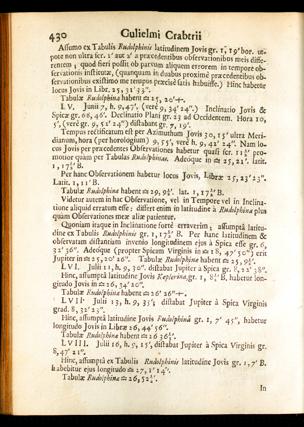 430 Gulielmi Crabtrii
Assumo ex Tabulis Rudolphinis latitudinem Jovis gr. 1, 19' bor. ut-
pote non ultra scr. 1' aut 2' a præcedentibus observationibus meis diffe-
rentem; quod fieri possit ob parvum aliquem errorem in tempore ob-
servationis institutæ, (quunquam in duabus proximè præcedentibus ob-
servationibus existimo me tempus præcisè satis habuisse.) Hinc habetur
locus Jovis in Libr. 25, 31' 33".
Tabulæ Rudolphinæ habent ♎ 25, 20' +.
LV. Junii 7, h. 9, 47', (verè 9, 34' 24".) Inclinatio Jovis &
Spicæ gr. 68, 46'. Declinatio Plani gr. 23 ad Occidentem. Hora 10,
5', (verè gr. 9, 52' 24") distabant gr. 7, 19'.
Tempus rectificatum est per Azimuthum Jovis 30, 15' ultra Meri-
dianum, hora (per horologium) 9, 55', verè h. 9, 42' 24". Nam lo-
cus Jovis per præcedentes Observationes habetur quasi scr. 11½' pro-
motior quam per Tabulas Rudolphinas. Adeoque in ♎ 25, 21'. latit.
1, 17½' B.
Per hanc Observationem habetur locus Jovis, Libræ 25, 23' 23".
Latit. 1, 11' B.
Tabulæ Rudolphinæ habent ♎ 29, 9½'. lat. 1, 17½' B.
Videtur autem in hac Observatione, vel in Tempore vel in Inclina-
tione aliquid erratum esse; differt enim in latitudine à Rudolphina plus
quàm Observationes meæ aliæ patientur.
Quoniam itaque in Inclinatione fortè erraverim, assumptâ latitu-
dine ex Tabulis Rudolphinis gr. 1, 17½' B. Per hanc latitudinem &
observatam distantiam invento longitudinem ejus à Spica esse gr. 6,
32' 36". Adeoque (propter Spicam Virginis in ♎ 18, 47' 50") erit
Jupiter in ♎ 25, 20' 26". Tabulæ Rudolphinæ habent ♎ 25, 9½'.
LVI. Julii 11, h. 9, 30'. distabat Jupiter à Spica gr. 8, 22' 38".
Hinc, assumptâ latitudine Jovis Keplerina, gr. 1, 8½' B, habetur lon-
gitudo Jovis in ♎ 26, 34' 20".
Tabulæ Rudolphinæ habent ♎ 26' 26" +.
LVII. Julii 13, h. 9, 35', distabat Jupiter à Spica Virginis
grad. 8, 32' 23".
Hinc, assumptâ latitudine Jovis Rudolphinâ gr. 1, 7' 45", habetur
longitudo Jovis in Libræ 26, 44' 56".
Tabulæ Rudolphinæ habent ♎ 26 36½'.
LVIII. Julii 16, h. 9, 15', distabat Jupiter à Spica Virginis gr.
8, 47' 21".
Hinc, assumptâ ex Tabulis Rudolphinis latitudine Jovis gr. 1, 7' B.
habebitur ejus longitudo ♎ 27, 1' 14".
Tabulæ Rudolphinæ ♎ 26, 52½'.
In